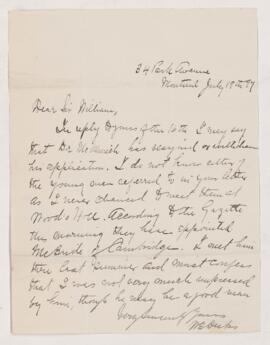 34 Park Avenue
Montreal July 19th 97
Dear Sir William,
In reply to yours of the 16th I may say
that Dr has resigned or withdrawn
his application. I do not know either of
the young men referred to in your letter
as I never chanced to meet them at
Woods Hole. According to the Gazette
this morning they have appointed
McBride of Cambridge. I met him
there last summer and must confess
that I was not very much impressed
by him, though he may be a good man
Very sincerely yours
W E Deeks